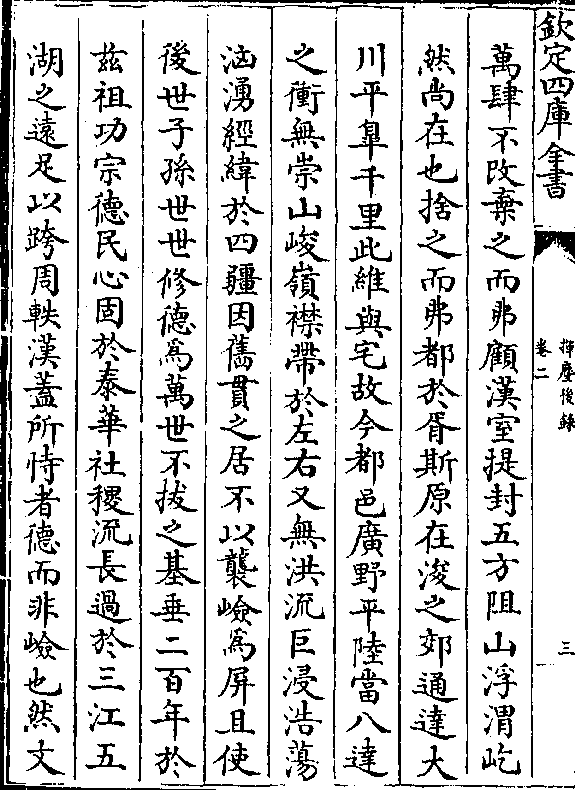 欽定四庫全書
揮麈後錄
卷二
三
萬肆不改棄之而弗顧漢室提封五方阻山浮渭屹
然尚在也捨之而弗都於胥斯原在浚之郊通達大
川平臯千里此維與宅故今都邑廣野平陸當八達
之衝無崇山峻嶺襟帶於左右又無洪流巨浸浩蕩
洶湧經緯於四疆因舊貫之居不以襲嶮為屏且使
後世子孫世世修德為萬世不拔之基垂二百年於
茲祖功宗德民心固於泰華社稷流長過於三江五
湖之遠足以跨周軼漢蓋所恃者德而非嶮也然文